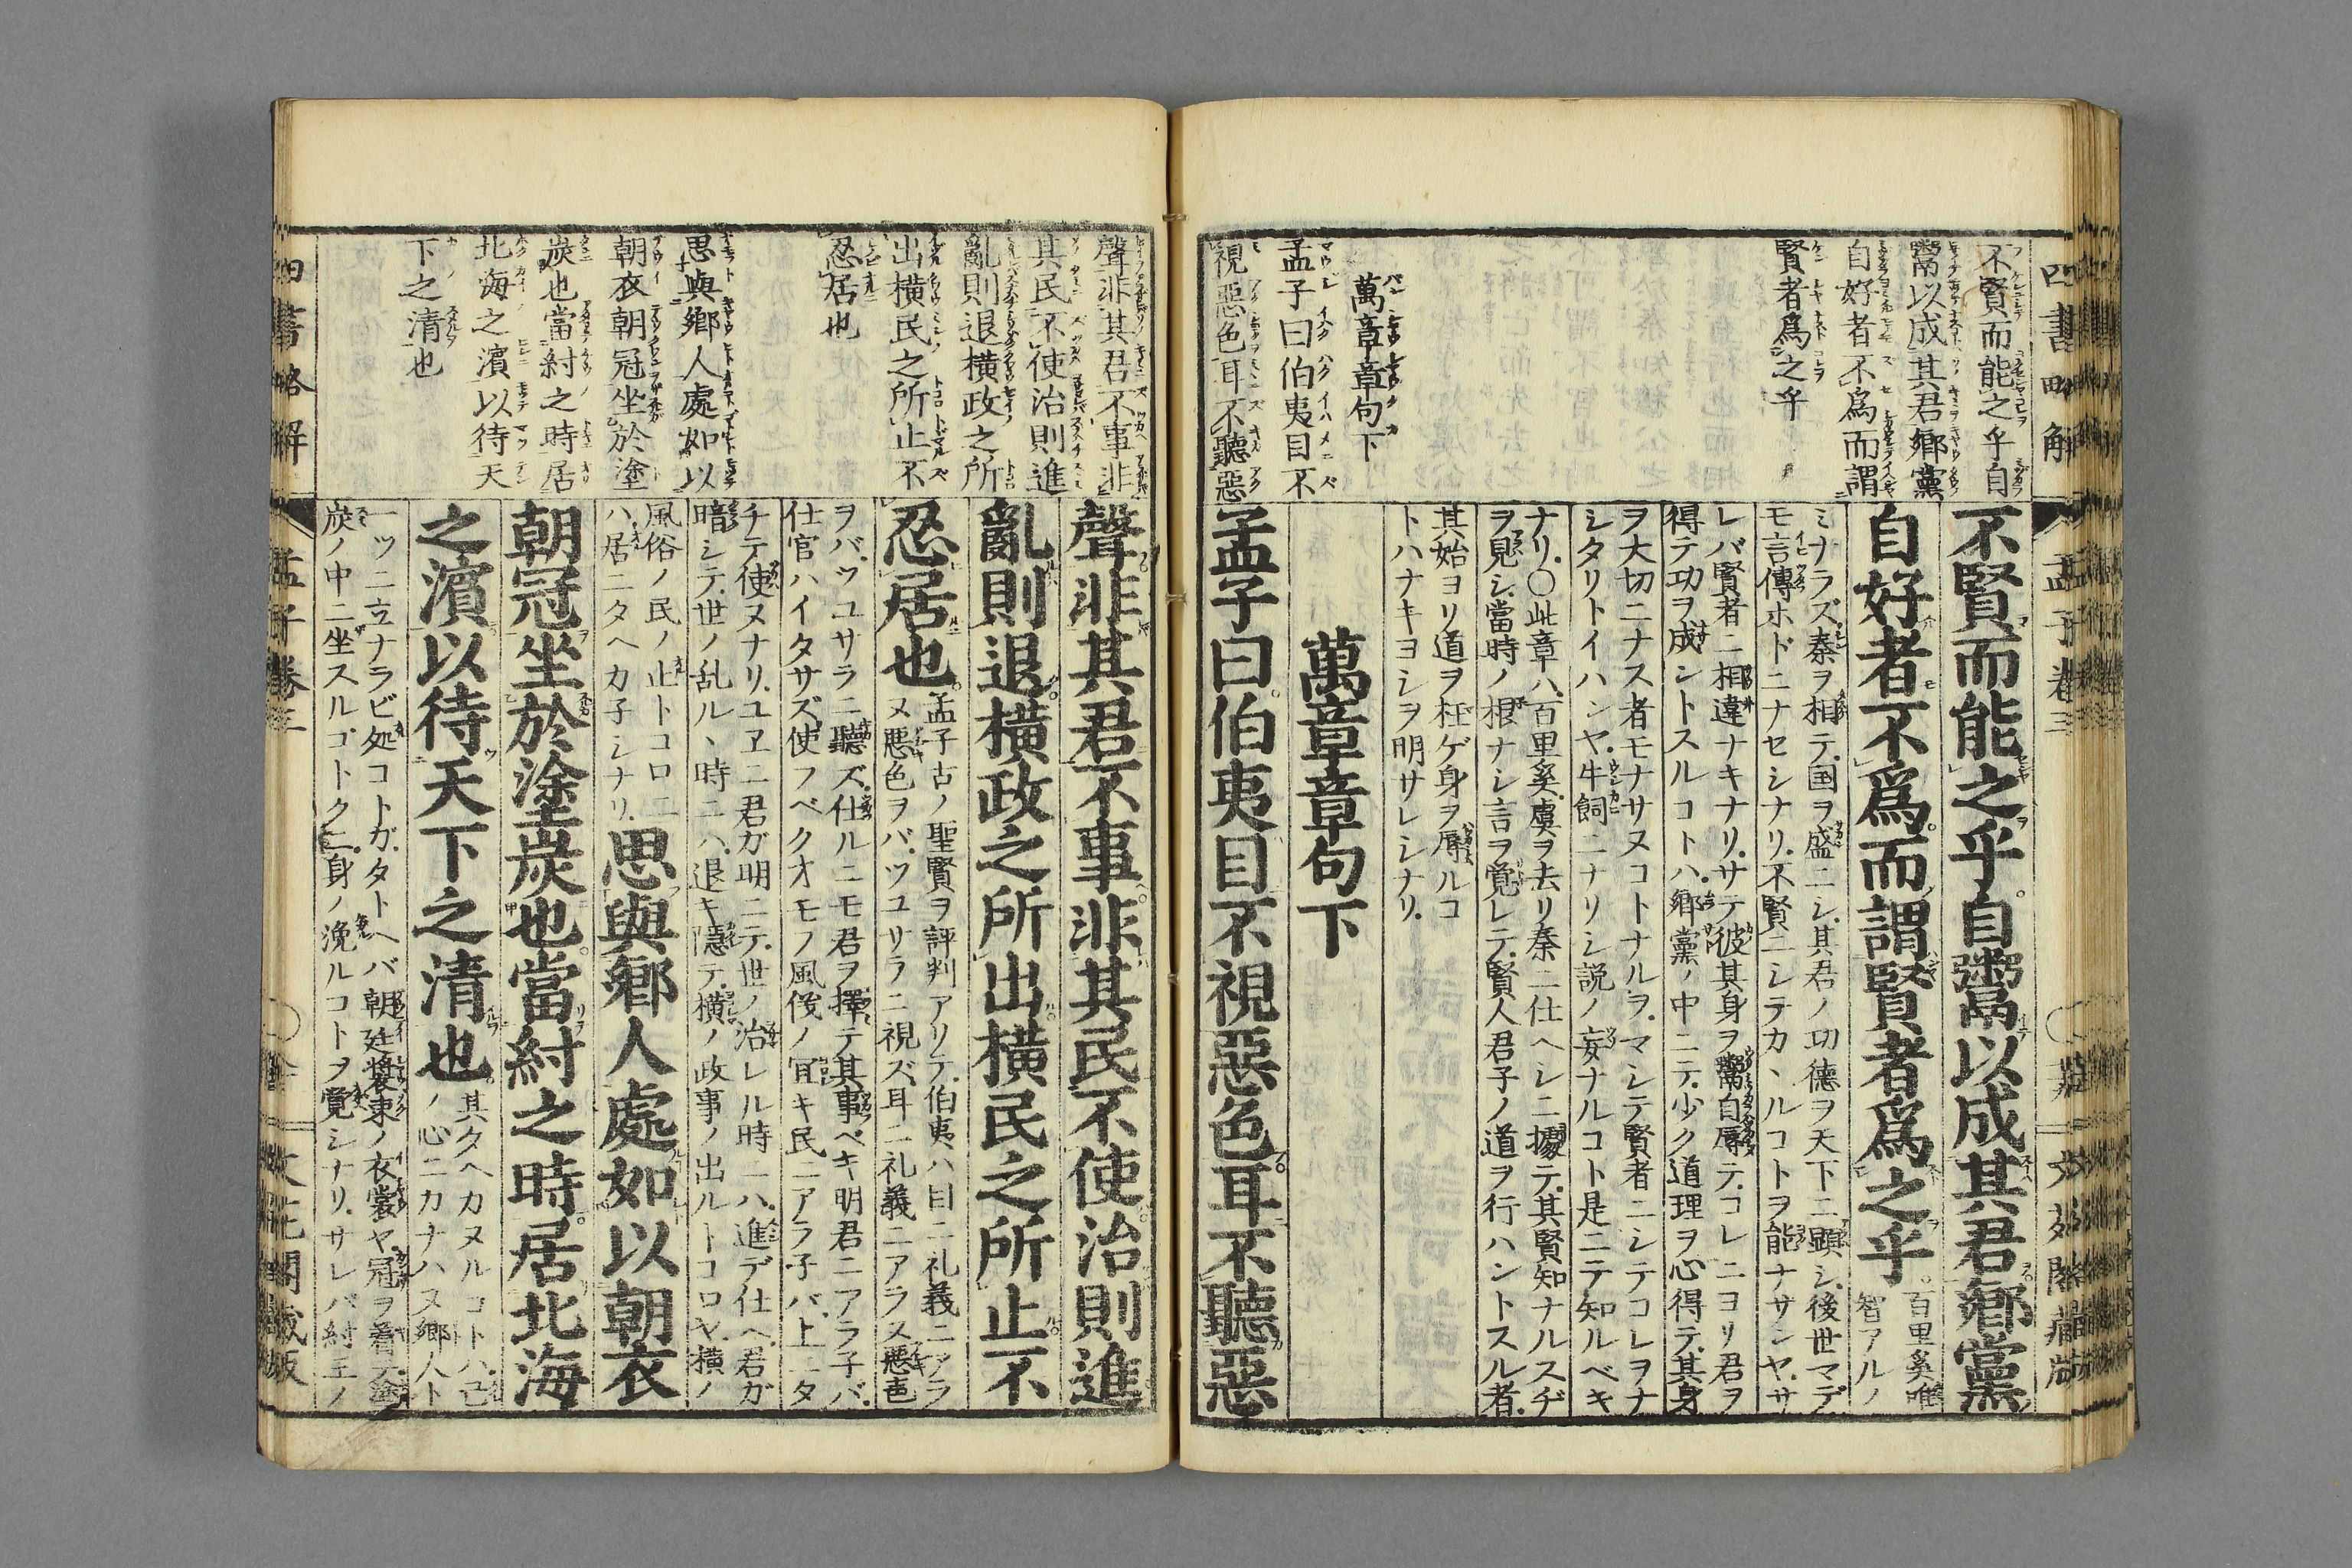 四書略解
孟子卷三
不賢而能之乎自
鬻以成其君鄉黨
自好者不爲而謂
賢者爲之乎
萬章章句下
孟子曰伯夷目不
視惡色耳不聽惡
不賢而能之乎。自鬻以成其君。鄉黨
自好者不爲。而謂賢者爲之乎。
百里奚唯
智アルノ
ミナラズ。秦ヲ相テ。国ヲ盛ニシ。其君ノ功德ヲ天下ニ顕シ。後世マデ
モ言傳ホドニナセシナリ。不賢ニシテカヽルコトヲ能ナサンヤ。サ
レバ賢者ニ相違ナキナリ。サテ彼其身ヲ鬻自辱テ。コレニヨリ君ヲ
得テ功ヲ成ントスルコトハ。鄉黨ノ中ニテ。少ク道理ヲ心得テ。其身
ヲ大切ニナス者モナサヌコトナルヲ。マシテ賢者ニシテコレヲナ
シタリトイハンヤ。牛飼ニナリシ説ノ妄ナルコト是ニテ知ルベキ
ナリ。○此章ハ。百里奚。虞ヲ去リ秦ニ仕ヘシニ據テ。其賢知ナルスヂ
ヲ見シ。當時ノ根ナシ言ヲ覚レテ。賢人君子ノ道ヲ行ハントスル者。
其始ヨリ道ヲ枉ゲ身ヲ辱ルコ
トハナキヨシヲ明サレシナリ。
萬章章句下
孟子曰。伯夷目不視惡色。耳不聽惡
聲非其君不事非
其民不使治則進
亂則退橫政之所
出橫民之所止不
忍居也
思與鄉人處如以
朝衣朝冠坐於塗
炭也當紂之時居
北海之濱以待天
下之清也
聲非其君不事。非其民不使。治則進。
亂則退。橫政之所出。橫民之所止。不
忍居也。
孟子古ノ聖賢ヲ評判アリテ。伯夷ハ目ニ礼義ニアラ
ヌ惡色ヲバ。ツユサラニ視ズ。耳ニ礼義ニアラヌ惡声
ヲバ。ツユサラニ聽ズ。仕ルニモ君ヲ擇テ其事ベキ明君ニアラ子バ。
仕官ハイタサズ。使フベクオモフ風俊ノ冝キ民ニアラ子バ。上ニタ
チテ使ヌナリ。ユヱニ君ガ明ニテ。世ノ治レル時ニハ。進デ仕ヘ。君ガ
暗シテ。世ノ乱ルヽ時ニハ。退キ隱テ。橫ノ政事ノ出ルトコロヤ。橫ノ
風俗ノ民ノ止トコロニ
ハ居ニタヘカ子シナリ。
思與鄉人處。如以朝衣
朝冠坐於塗炭也。當紂之時。居北海
之濱以待天下之清也。
其タヘカヌルコトハ。己
ノ心ニカナハヌ鄉人ト
一ツニ立ナラビ処コトガ。タトヘバ朝廷裝束ノ衣裳ヤ冠ヲ着テ。塗
炭ノ中ニ坐スルゴトクニ。身ノ浼ルコトヲ覺シナリ。サレバ紂王ノ
四書略解
孟子卷三
文花閣蔵板